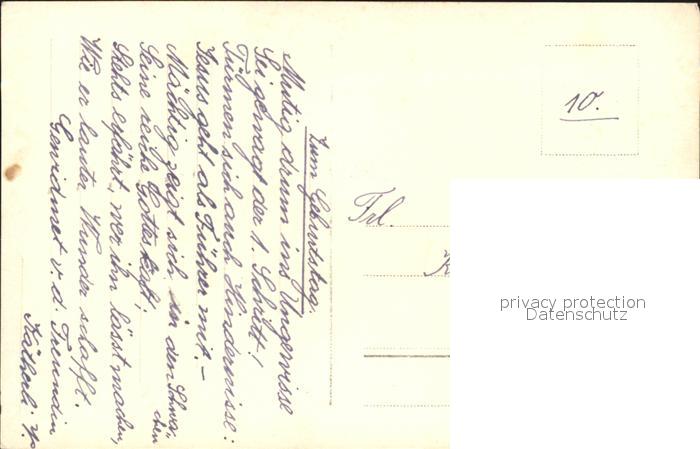 Zum Geburtstag.
Mutig drum ins Ungewisse
Sei gewagt der 1. Schritt!
Türmen sich auch Hindernisse:
Jesus geht als Führer mit.–
Mächtig zeigt sich in den Schwa-
chen
Seine reiche Gotteskraft;
Stehts erfährt, wer ihn lässt machen,
Wie er lauter Wunder schafft.
Gewidmet v. d. Freundin
Kätherli
10.
Frl.
K
privacy protection
Datenschutz